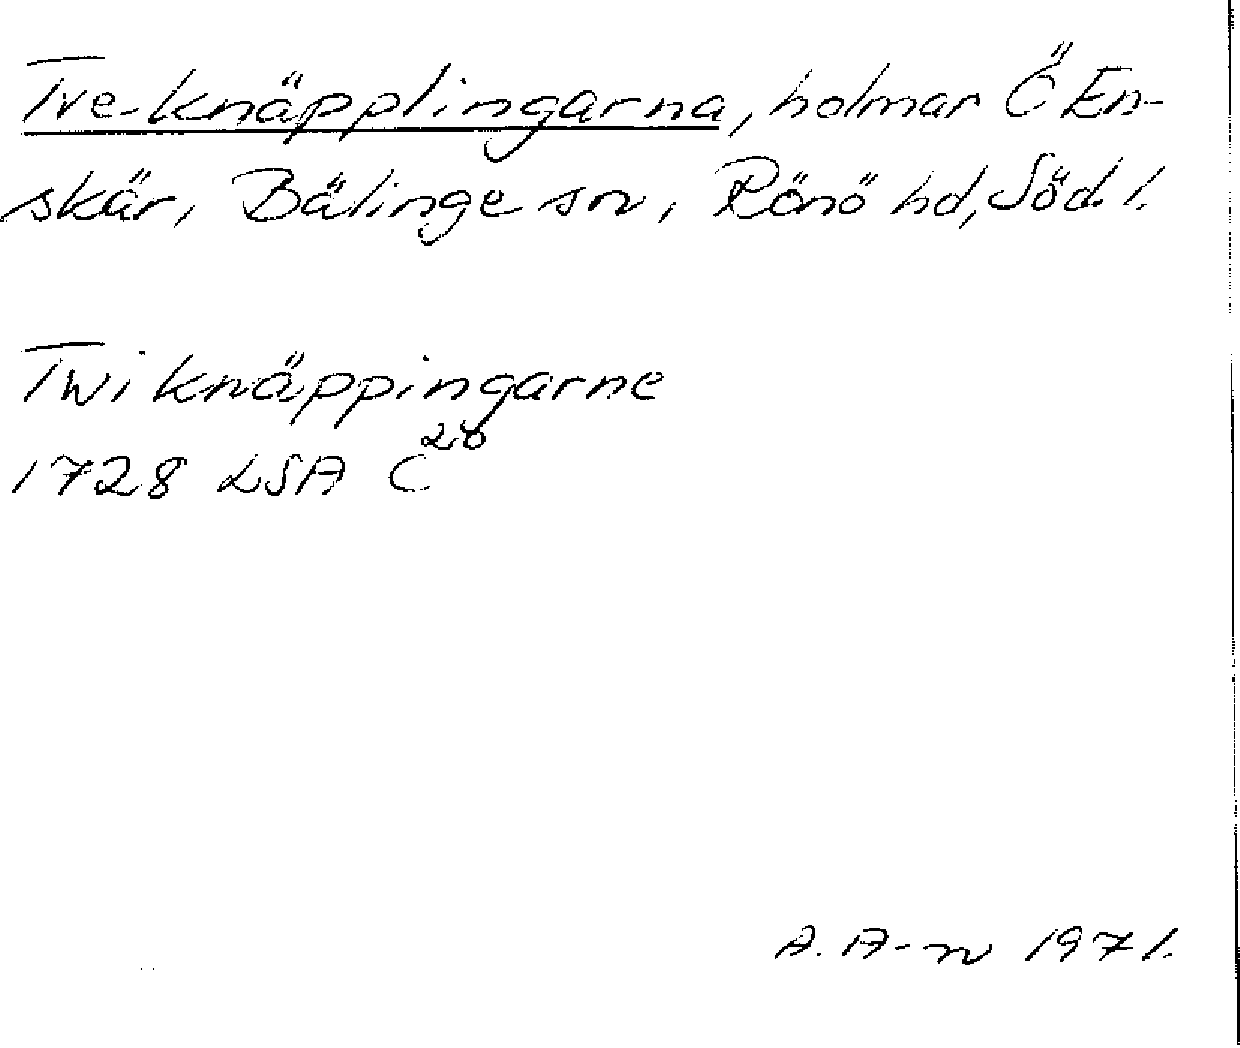 Tve-knäpplingarna, holmar Ö En-
skär, Bälinge sn, Rönö hd, Söd l.
Twi knäppingarne
1728 LSA C²⁸
A. A-n 1971.